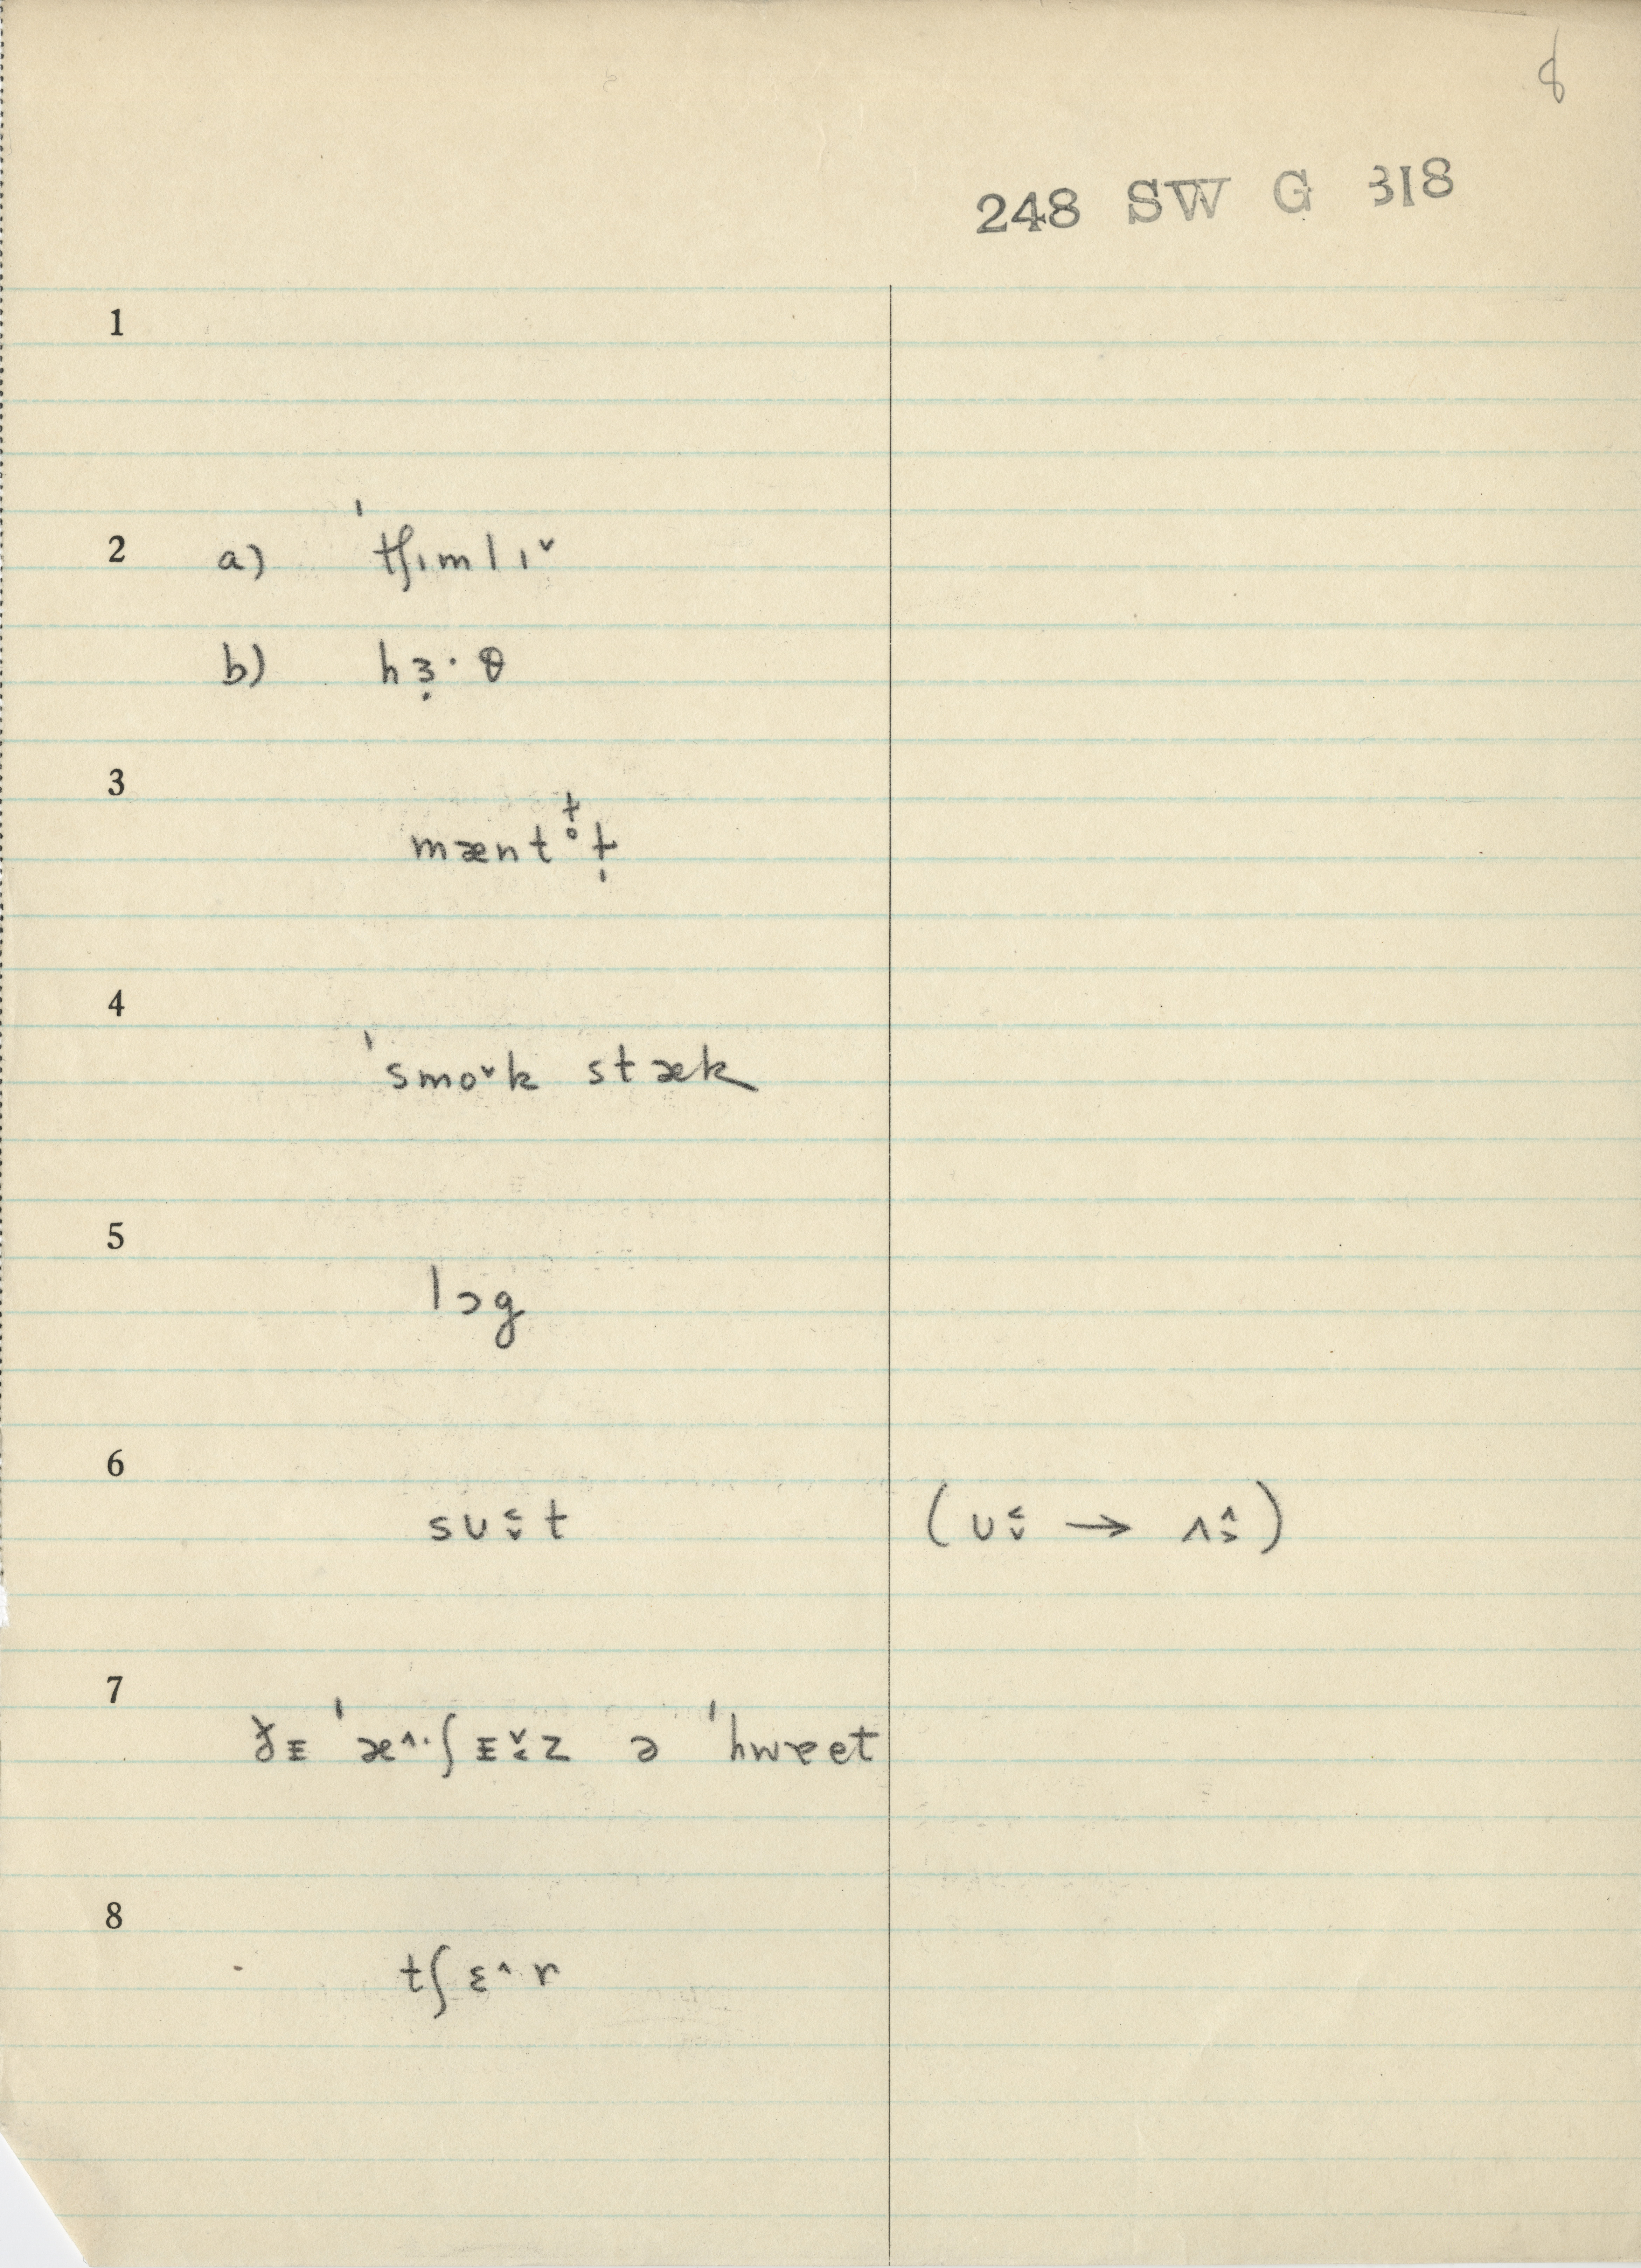 8
248 SW G 318
1
2 a) ˈtʃɪmlɪ˅
b) hɜ̣·θ
3 mænt
4 ˈsmo˅k stæk
5 lɔg
6 sʊ˂˅t (ʊ˂˅ → ʌ˄˃)
7 ˈæ^·ʃ ə ˈhweet
8 tʃɛ^r